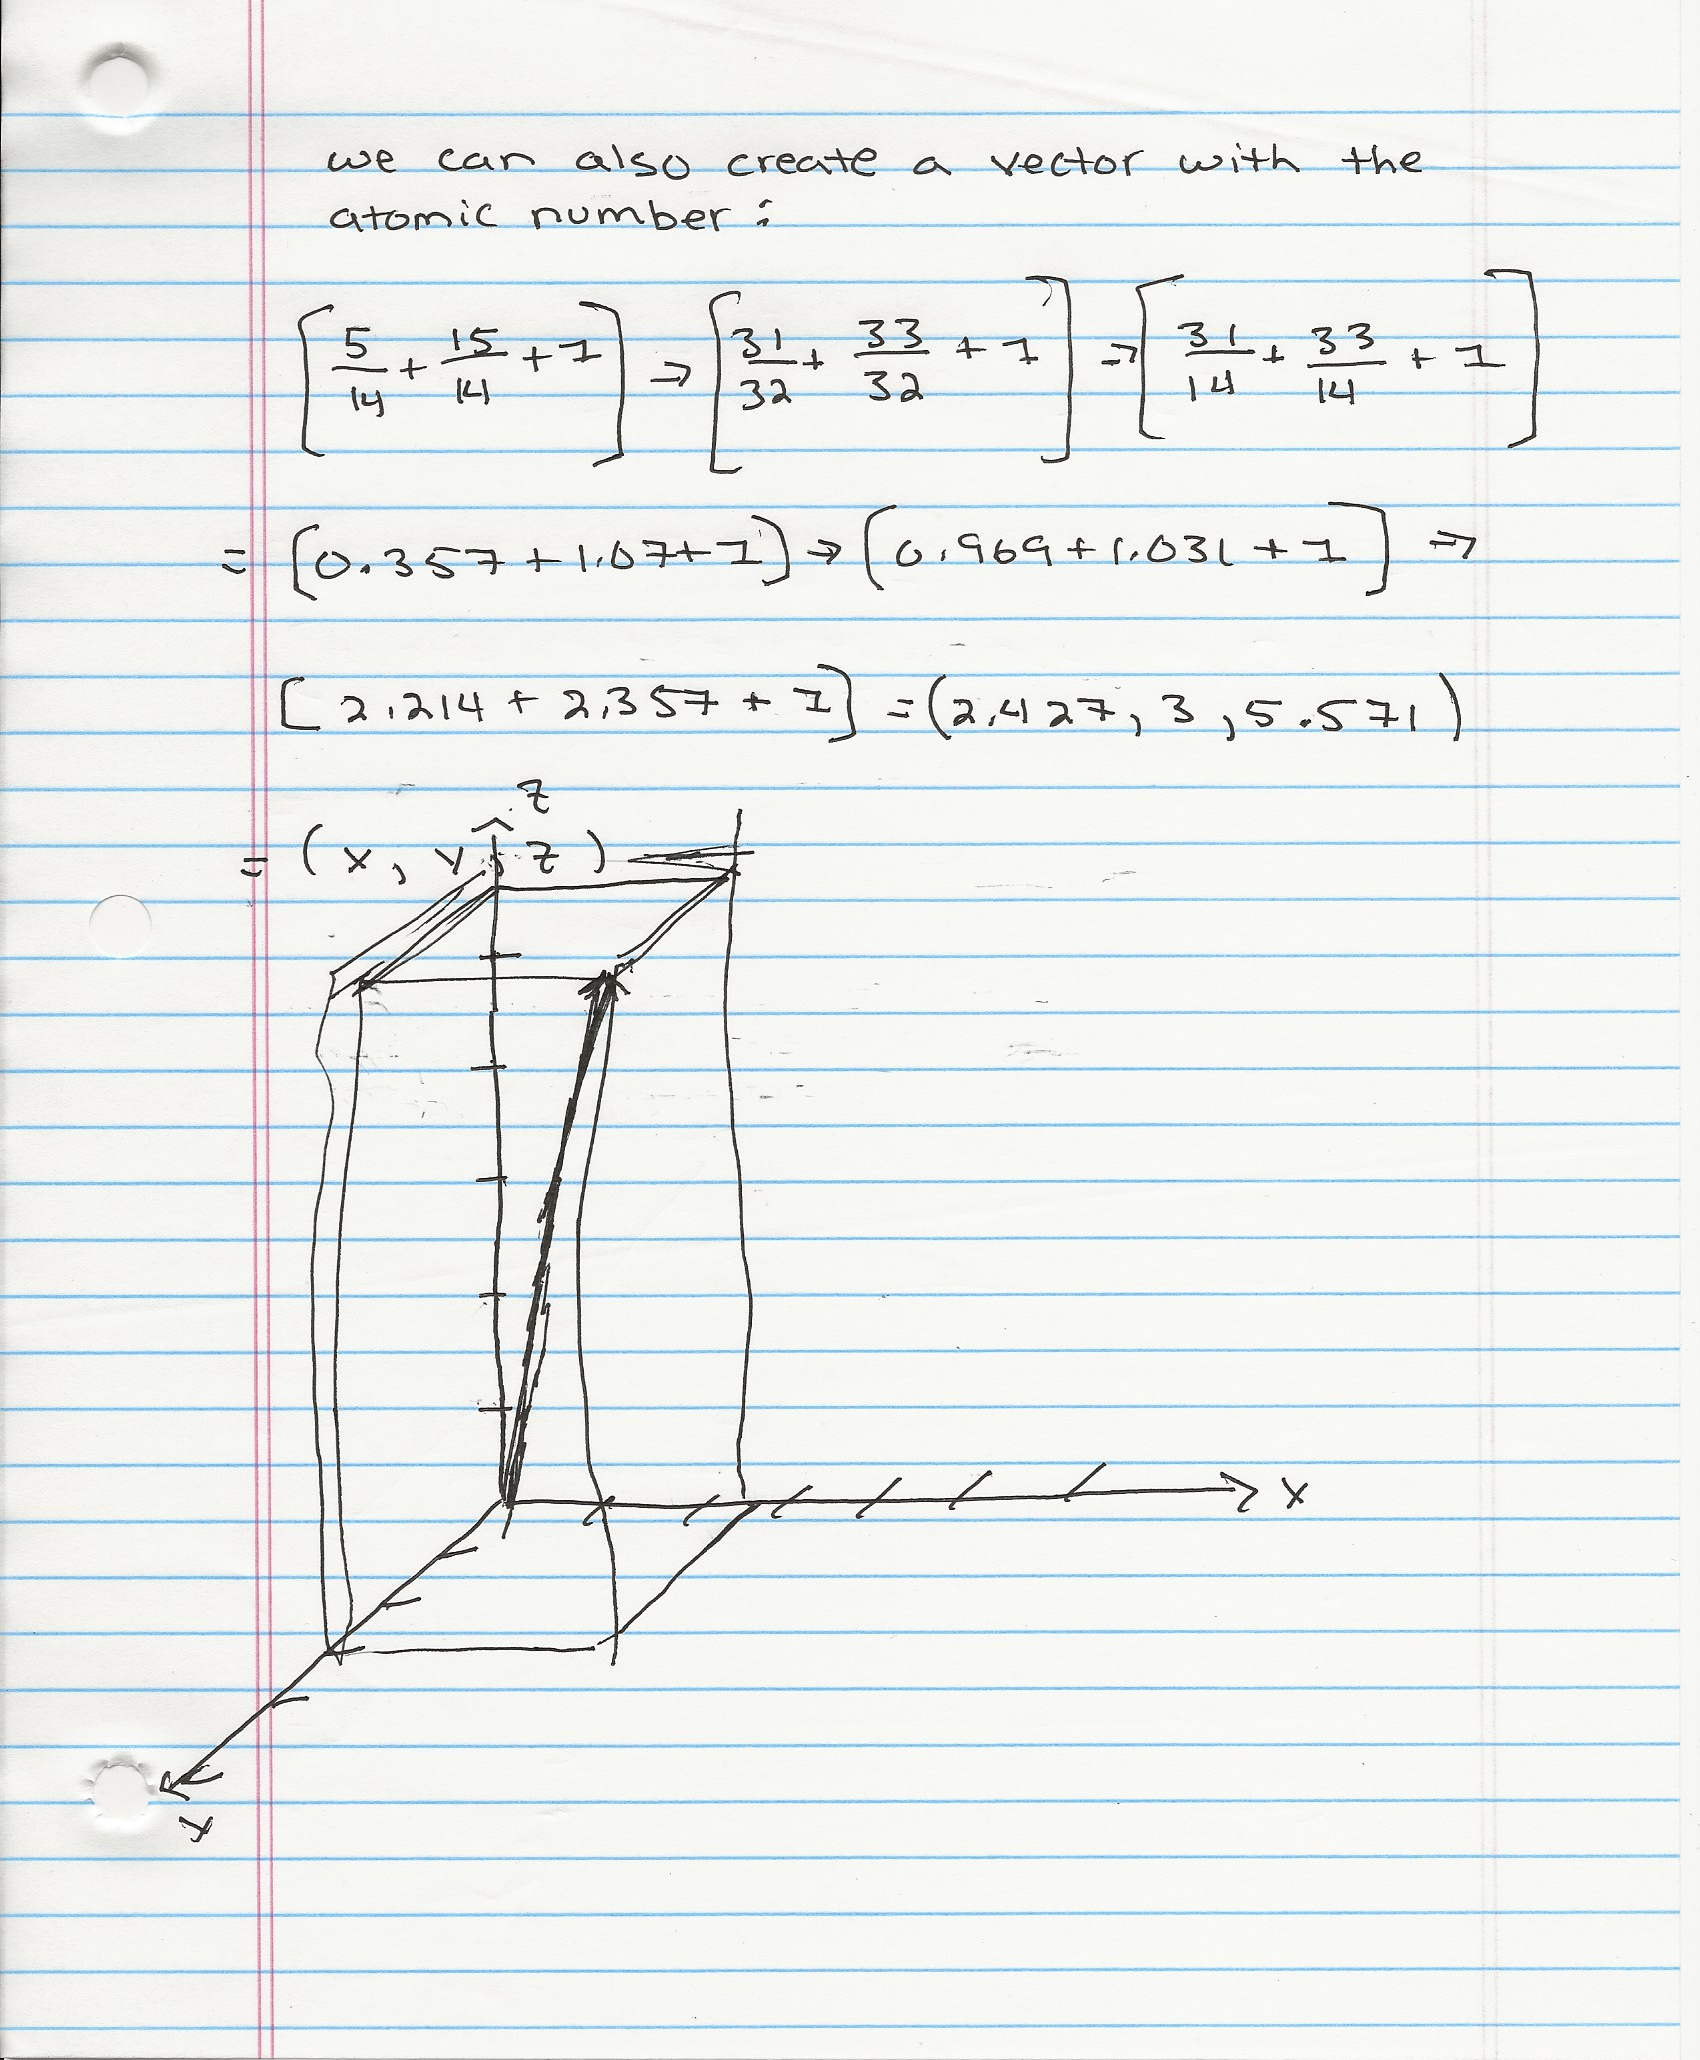 we can also create a vector with the
atomic number:
[5/14 + 15/14 + 1] → [31/32 + 33/32 + 1] → [31/14 + 33/14 + 1]
= [0.357 + 1.07 + 1] → [0.969 + 1.031 + 1] →
[2.214 + 2.357 + 1] = (2.427, 3, 5.571)
z
= (x, y, z)
x
y